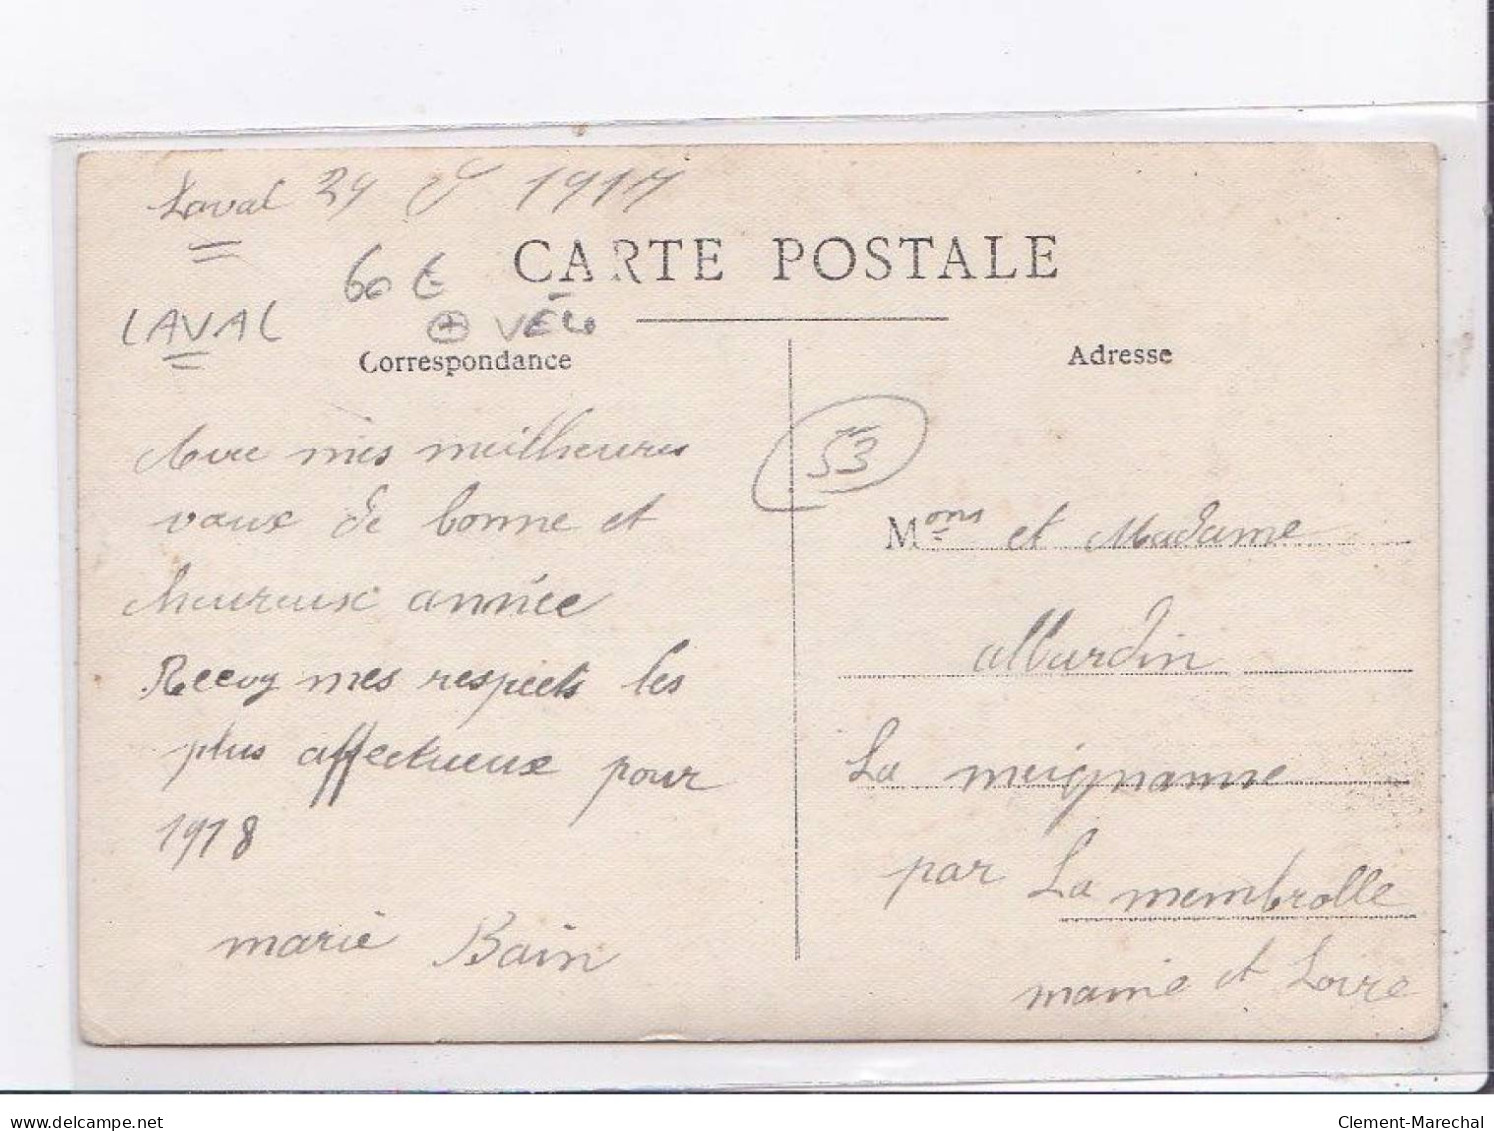 Laval 29 D 1917
60 €
LAVAL
+ VÉLO
CARTE POSTALE
Correspondance
Adresse
53
Avec mes meilheures
vœux de bonne et
heureuse année
Recevz mes respects les
plus affectueux pour
1918
marie Bain
Mons et Madame
allardin
La meignanne
par La membrolle
maine et Loire
delcampe.net
Clement-Marechal